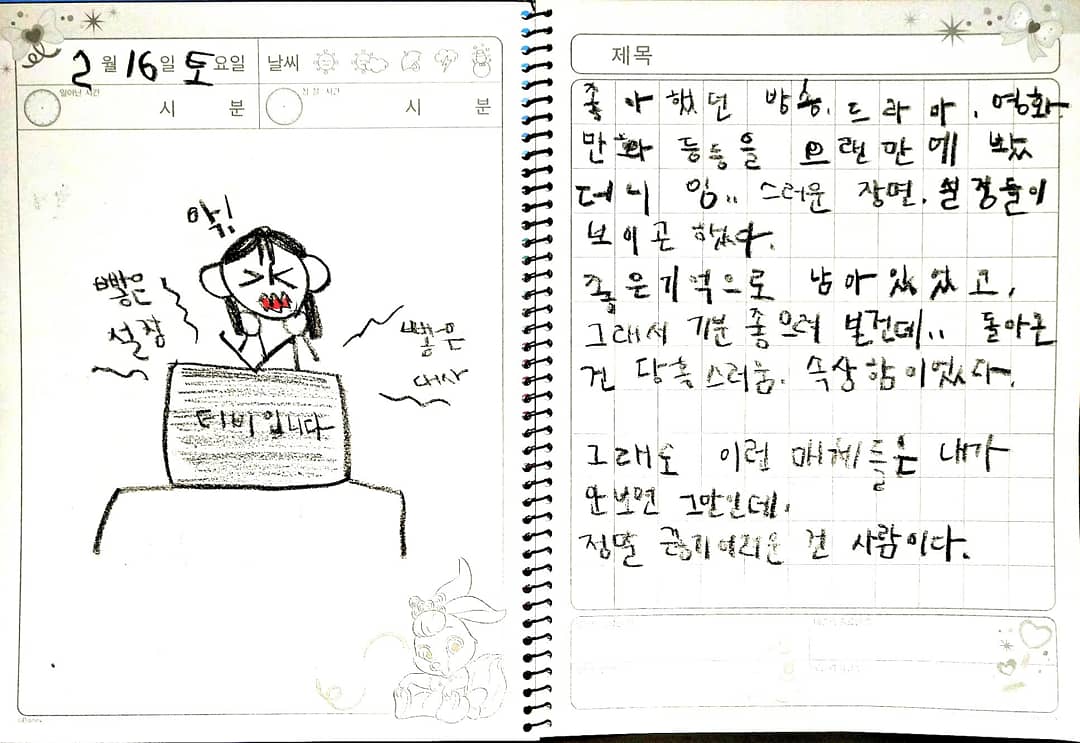 2월 16일 토요일 날씨
일어난 시간 시 분 잠잘 시간 시 분
악!
빻은
설정
빻은
대사
티비입니다
제목
좋아했던 방송, 드라마, 영화
만화 등등을 오랜만에 봤
더니 읭.. 스러운 장면, 설정들이
보이곤 했다.
좋은기억으로 남아있었고,
그래서 기분 좋으려 본건데.. 돌아온
건 당혹스러움. 속상함이었다.
그래도 이런 매체들은 내가
안보면 그만인데,
정말 끊기어려운 건 사람이다.